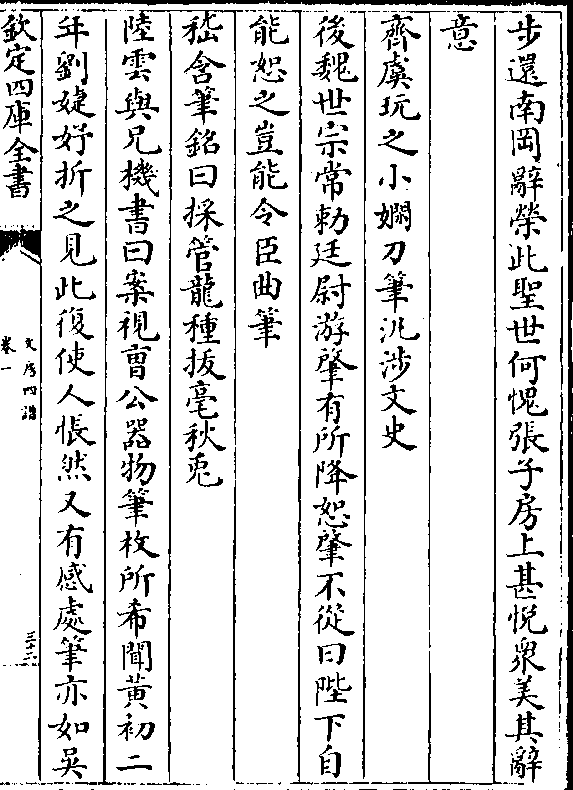 步還南岡辭榮此聖世何愧張子房上甚悅衆美其辭
意
齊虞玩之小嫺刀筆汎涉文史
後魏世宗常勅廷尉游肇有所降恕肇不從曰陛下自
能恕之豈能令臣曲筆
嵇含筆銘曰採管龍種拔毫秋兎
陸雲與兄機書曰案視曹公器物筆枚所希聞黃初二
年劉婕妤折之見此復使人悵然又有感處筆亦如吳
欽定四庫全書
文房四譜
卷一
三十二